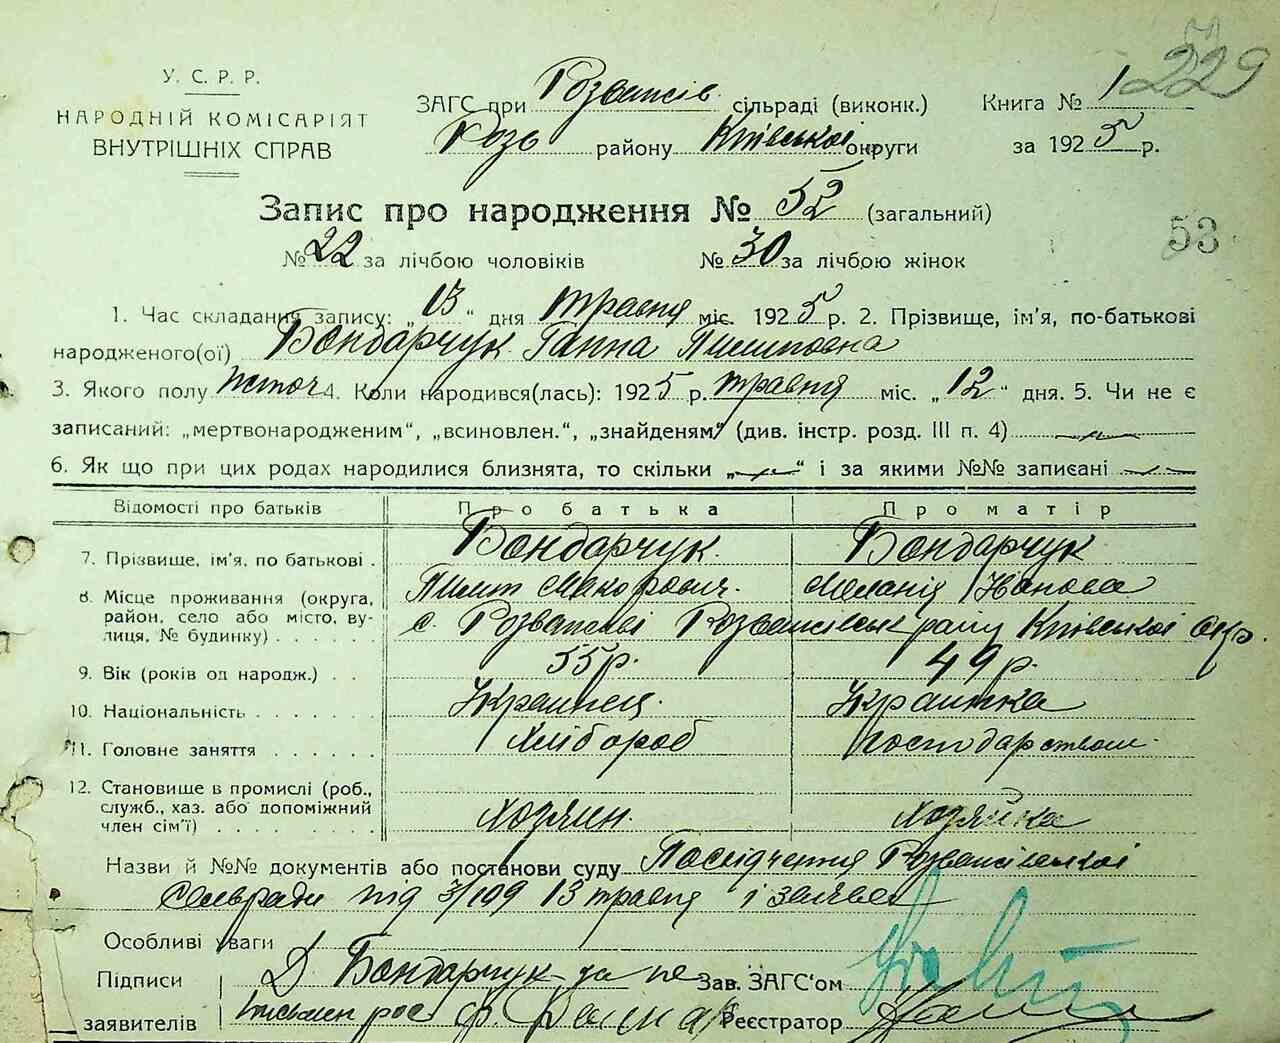 229
У. С. Р. Р.
НАРОДНІЙ КОМІСАРІЯТ
ВНУТРІШНІХ СПРАВ
ЗАГС при Розважів. сільраді (виконк.) Книга № 1
Розв району Київської округи за 1925 р.
Запис про народження № 52 (загальний)
53
№ 22 за лічбою чоловіків № 30 за лічбою жінок
1. Час складання запису: „13“ дня травня міс. 1925 р. 2. Прізвище, ім'я, по-батькові
народженого(ої) Бондарчук Ганна Пилиповна
3. Якого полу жіноч 4. Коли народився(лась): 1925 р. травня міс. „12“ дня. 5. Чи не є
записаний: „мертвонародженим“, „всиновлен.“, „знайденям“ (див. інстр. розд. III п. 4)
6. Як що при цих родах народилися близнята, то скільки „—“ і за якими №№ записані —
Відомості про батьків Про батька Про матір
7. Прізвище, ім'я, по батькові . Бондарчук Бондарчук
Пилип Макорович. Меланія Іванова
8. Місце проживання (округа,
район, село або місто, ву-
лиця, № будинку) с. Розважеві Розважівськ райу Київської окр.
9. Вік (років од народж.) . . 55 р. 49 р.
10. Національність Українец. Українка
11. Головне заняття Хлібороб господарством
12. Становище в промислі (роб.,
служб., хаз. або допоміжний
член сім'ї) хозяин. хозяйка
Назви й №№ документів або постанови суду Посвідчення Розважівської
Сільради під 3/109 13 травня і заява
Особливі уваги
Підписи Бондарчук да не Зав. ЗАГС'ом
заявителів письмен рос Реєстратор